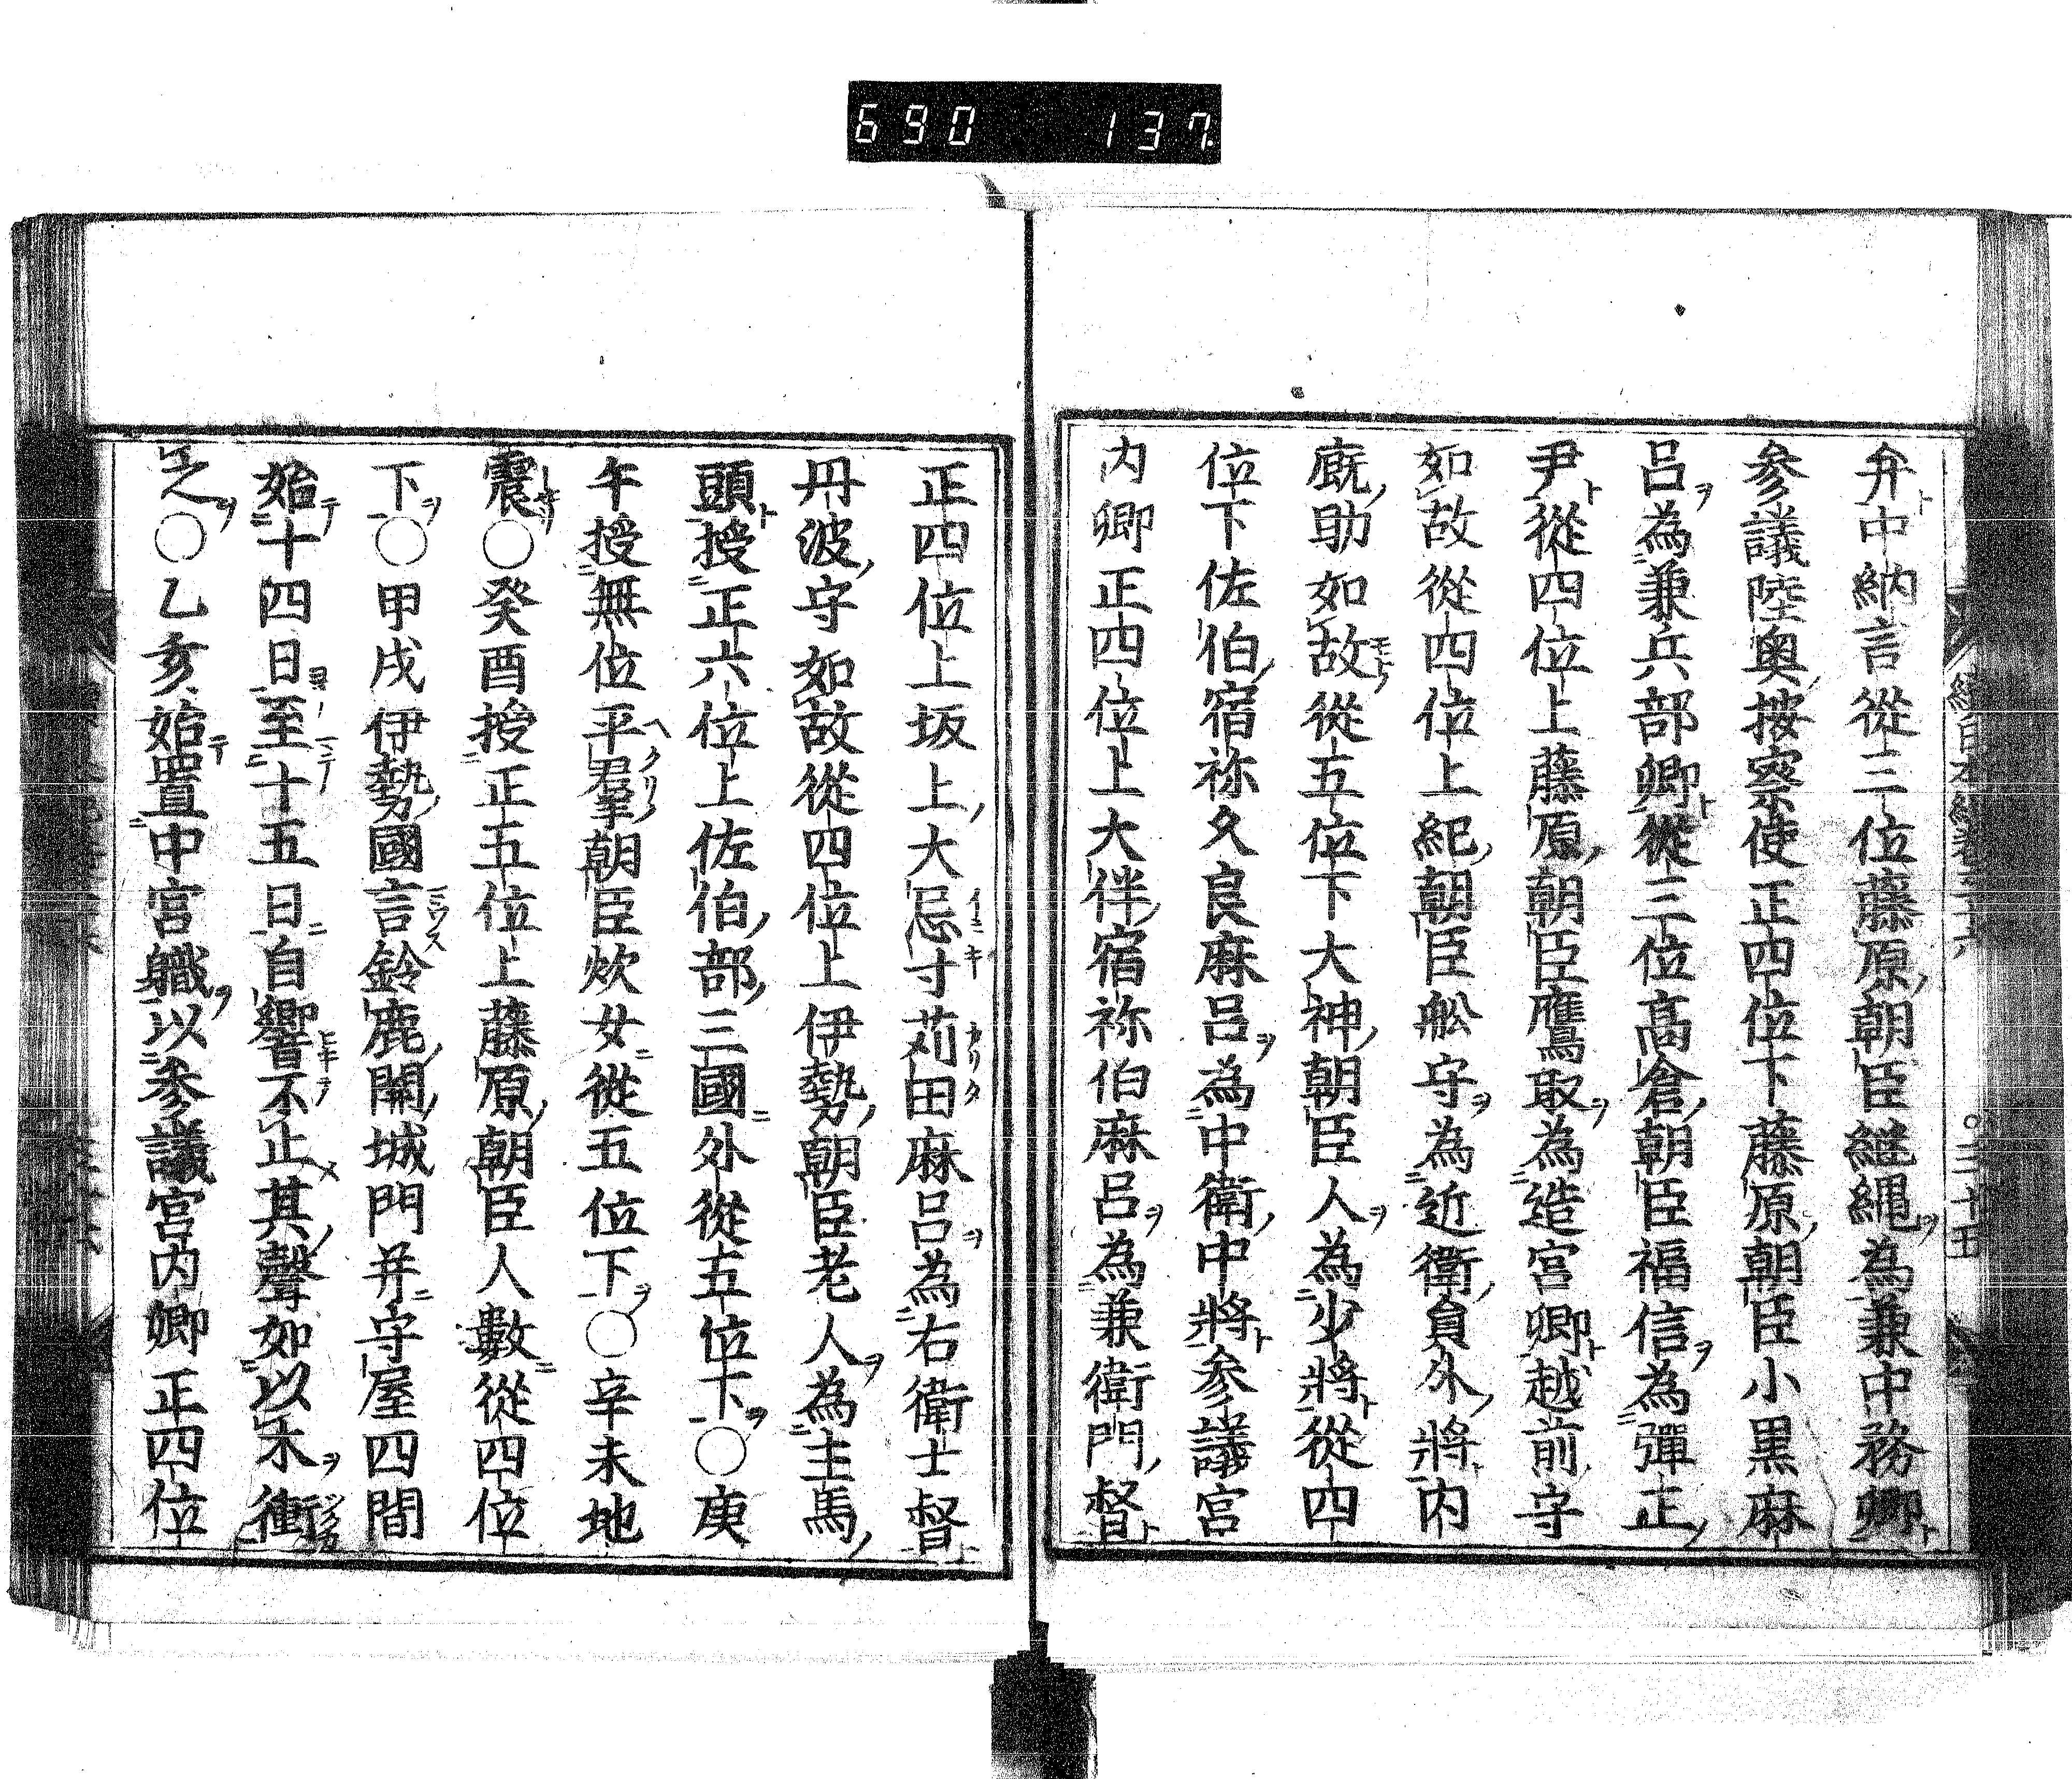 690 137
弁中納言從三位藤原朝臣継縄為兼中務卿
参議陸奥按察使正四位下藤原朝臣小黒麻
呂為兼兵部卿從三位高倉朝臣福信為彈正
尹從四位上藤原朝臣鷹取為造宮卿越前守
如故從四位上紀朝臣舩守為近衛員外將内
廐助如故從五位下大神朝臣人為少將從四
位下佐伯宿祢久良麻呂為中衛中將参議宮
内卿正四位上大伴宿祢伯麻呂為兼衛門督
正四位上坂上大忌寸苅田麻呂為右衛士督
丹波守如故從四位上伊勢朝臣老人為主馬
頭授正六位上佐伯部三國外從五位下○庚
午授無位平羣朝臣炊女從五位下○辛未地
震○癸酉授正五位上藤原朝臣人數從四位
下○甲戌伊勢國言鈴鹿関城門并守屋四間
始十四日至十五日自響不止其聲如以木衝
之○乙亥始置中宮職以参議宮内卿正四位